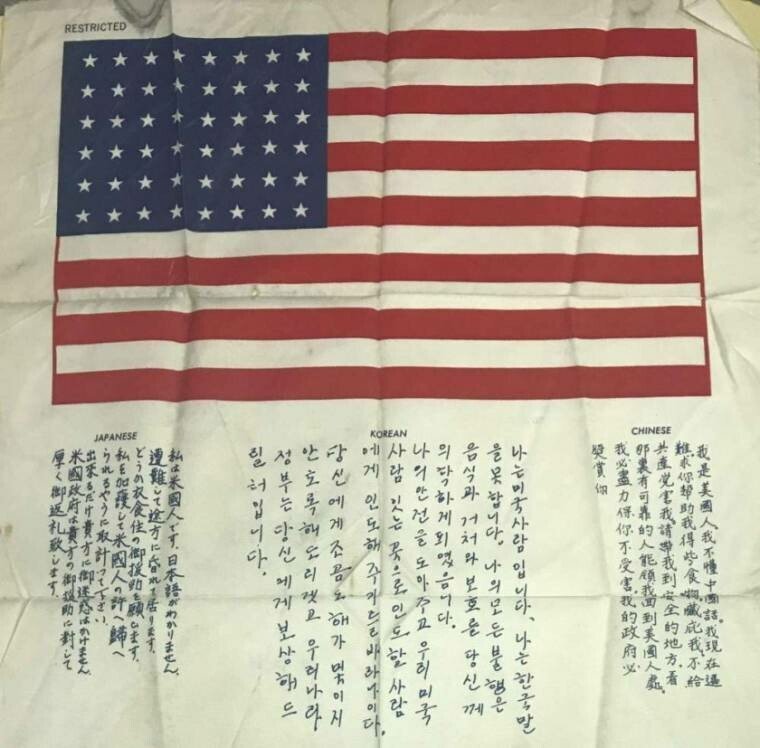 RESTRICTED
JAPANESE
私は米國人です．日本語がわかりません．
遭難して途方に昏れて居ります．
どうか衣食住の御援助を願ひます．
私を加護して米國人の許へ歸へ
られるやうに取計って下さい．
出來るだけ貴方に御迷惑はかけません．
米國政府は貴方の御援助に對して
厚く御返礼致します．
KOREAN
나는 미국사람 입니다. 나는 한국말
을 못합니다. 나의 모든 불행은
음식과 거처와 보호를 당신께
의탁하게 되였읍니다.
나의 안전을 도아주고 우리 미국
사람 잇는 곳으로 인도할 사람
에게 인도해 주기를 바라나이다.
당신에게 조곰도 해가 몃이지
안토록 해 드리겟고 우리나라
정부는 당신에게 보상해 드
릴 터입니다.
CHINESE
我是美國人．我不懂中國話．我現在遇
難．求你幫助我得些食物，藏庇我，不給
共產党害我．請帶我到安全的地方．看
那裏有可靠的人能領我回到美國人處．
我必盡力保你不受害．我的政府必
獎賞你